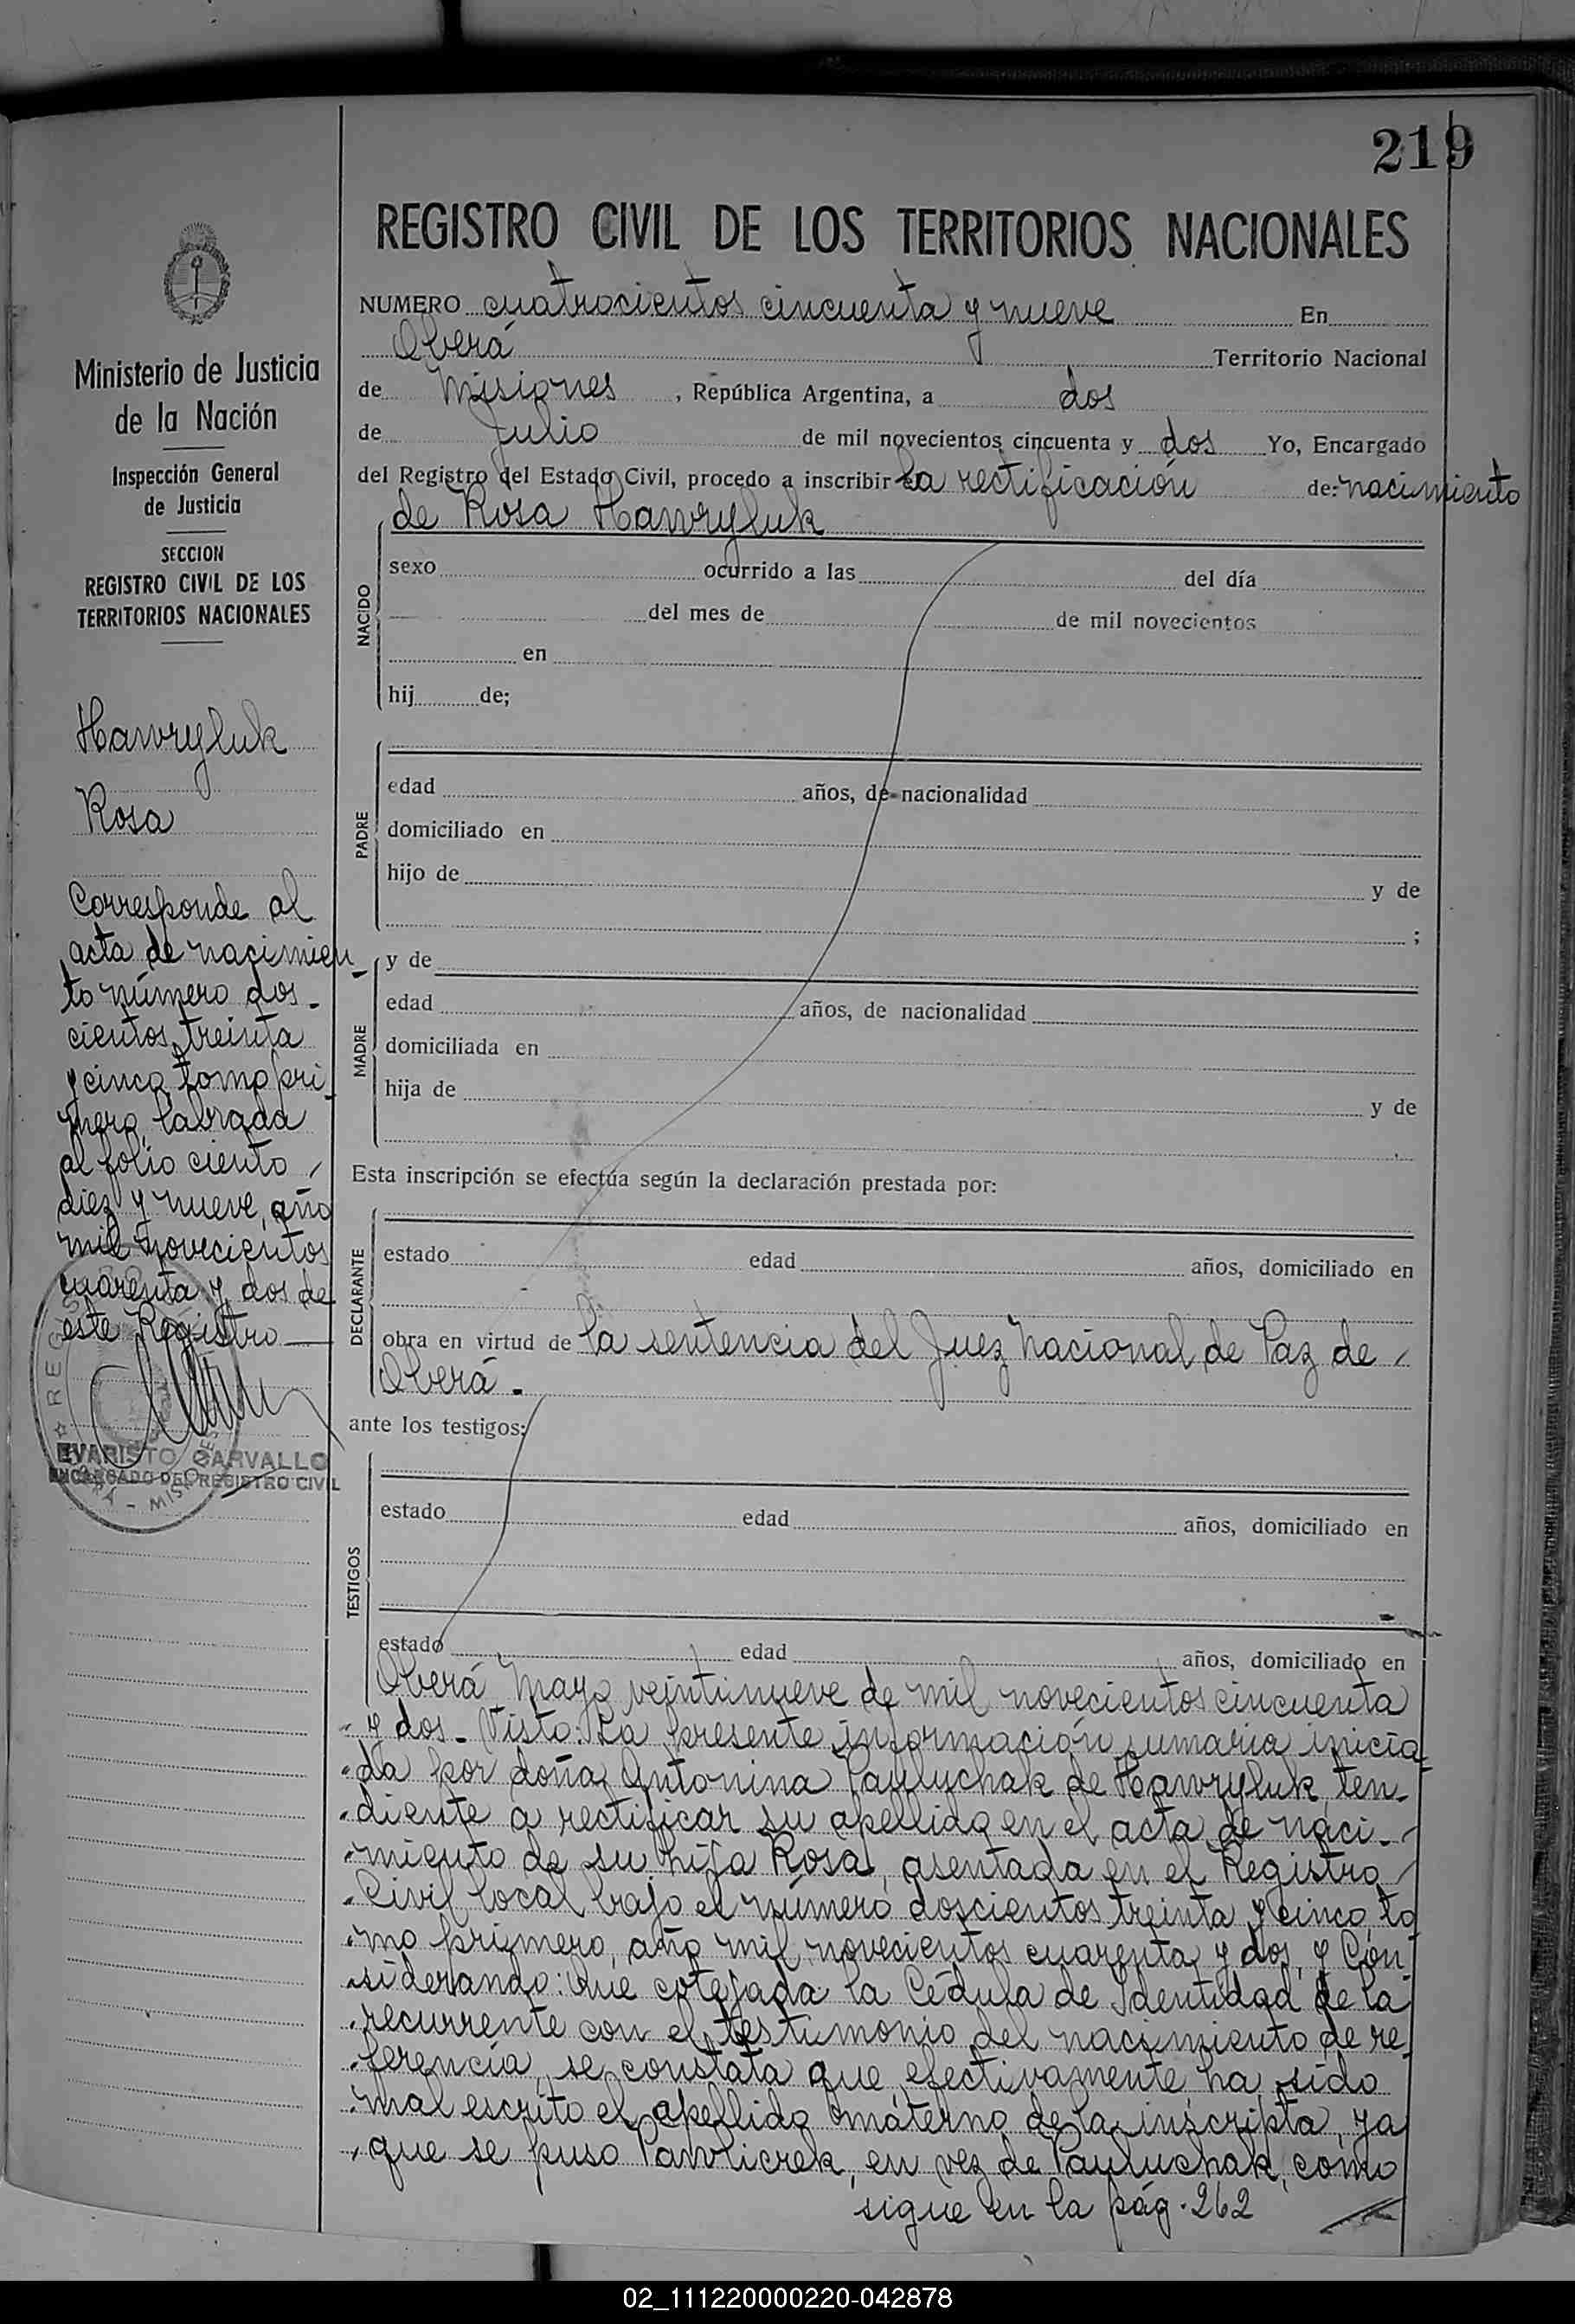 219
REGISTRO CIVIL DE LOS TERRITORIOS NACIONALES
Ministerio de Justicia
de la Nación
Inspección General
de Justicia
SECCION
REGISTRO CIVIL DE LOS
TERRITORIOS NACIONALES
Hawryluk
Rosa
Corresponde al
acta de nacimien
to número dos-
cientos treinta
y cinco, tomo pri
mero, labrada
al folio ciento
diez y nueve, año
mil novecientos
cuarenta y dos de
este Registro
EVARISTO CARVALLO
ENCARGADO DEL REGISTRO CIVIL
NUMERO cuatrocientos cincuenta y nueve En
Oberá Territorio Nacional
de Misiones, República Argentina, a dos
de Julio de mil novecientos cincuenta y dos Yo, Encargado
del Registro del Estado Civil, procedo a inscribir la rectificación de: nacimiento
de Rosa Hawryluk
NACIDO
sexo ocurrido a las del día
del mes de de mil novecientos
en
hij de;
PADRE
edad años, de nacionalidad
domiciliado en
hijo de y de
;
MADRE
y de
edad años, de nacionalidad
domiciliada en
hija de y de
Esta inscripción se efectúa según la declaración prestada por:
DECLARANTE
estado edad años, domiciliado en
obra en virtud de la sentencia del Juez Nacional de Paz de
Oberá.
ante los testigos:
TESTIGOS
estado edad años, domiciliado en
estado edad años, domiciliado en
Oberá Mayo veintinueve de mil novecientos cincuenta
y dos- Visto: La presente información sumaria inicia
da por doña Antonina Pauluchak de Hawryluk, ten-
diente a rectificar su apellido en el acta de naci-
miento de su hija Rosa, asentada en el Registro
Civil local bajo el número doscientos treinta y cinco, to
mo primero, año mil novecientos cuarenta y dos, y Con
siderando: Que cotejada la Cédula de Identidad de la
recurrente con el testimonio del nacimiento de re
ferencia, se constata que efectivamente ha sido
mal escrito el apellido materno de la inscripta, ya
que se puso Pawlicrek, en vez de Pauluchak, como
sigue en la pág. 262
02_111220000220-042878